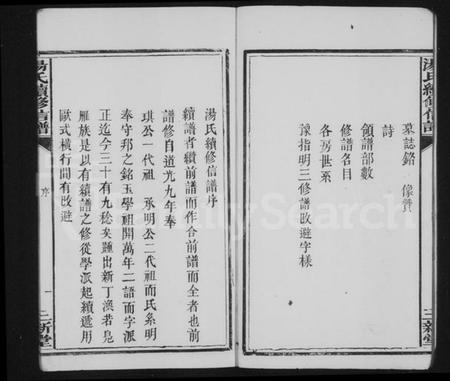 湯氏續修信譜
三新堂
墓誌銘 像贊
詩
領譜部數
修譜名目
各房世系
豫指明三修譜改避字樣
湯氏續修信譜
序
一
三新堂
湯氏續修信譜序
續譜者續前譜而作合前譜而全者也前
譜修自道光九年奉
琪公一代祖 承明公二代祖而氏系明
奉守邦之銘玉學祖開萬年二語而字派
正迄今三十有九稔矣踵出新丁渙若見
雁族是以有續譜之修從學派起續遞用
歐式橫行間有改避
FamilySearch